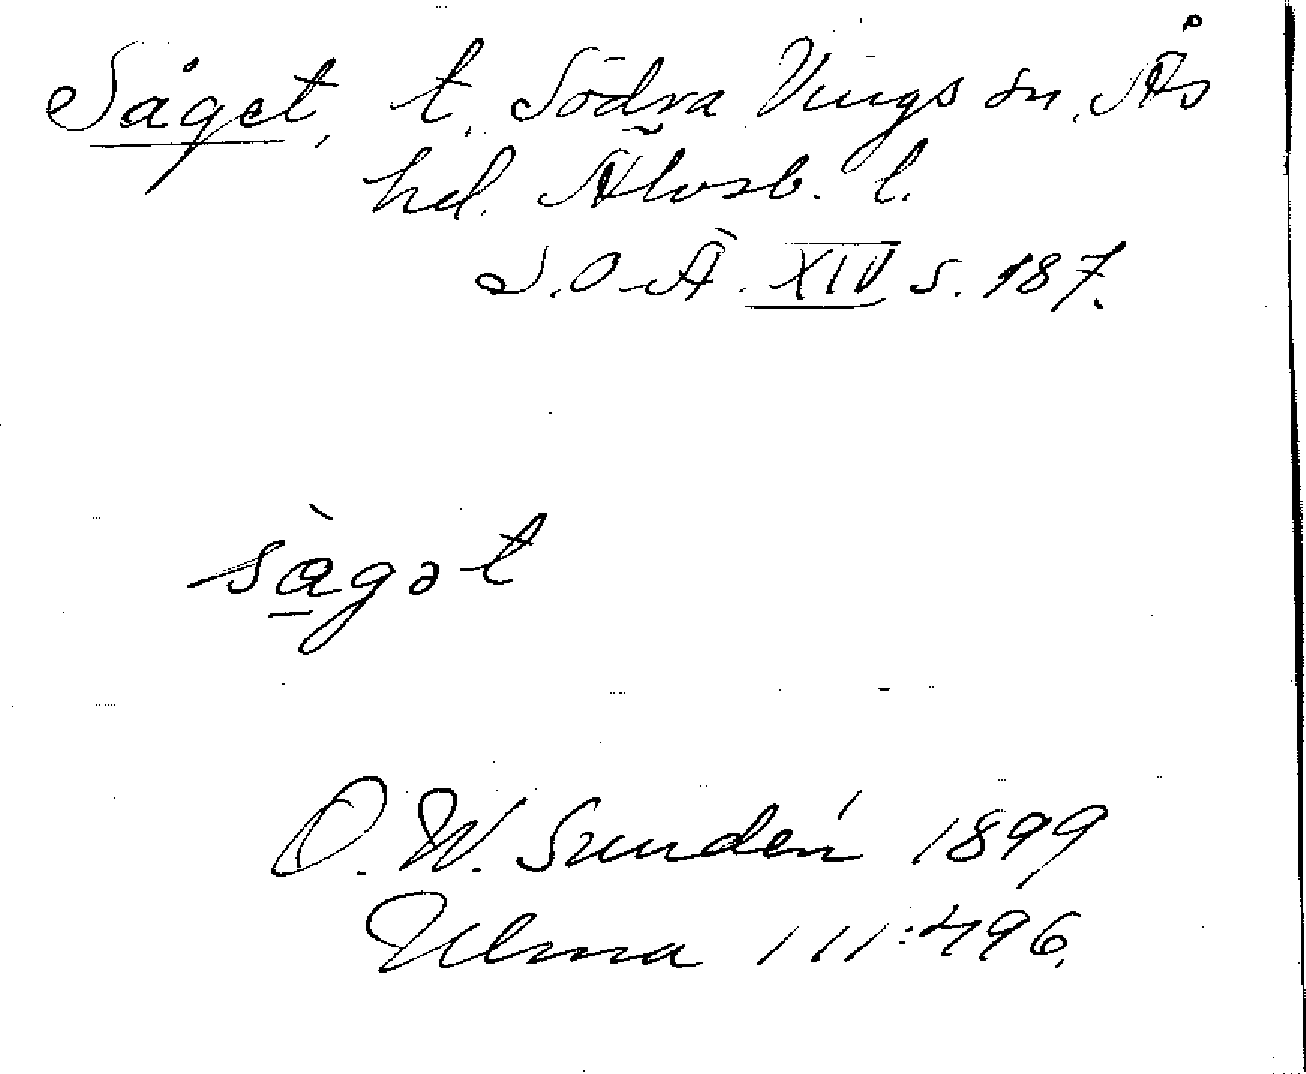 Såget, t. Södra Vings sn, Ås
hd. Älvsb. l.
S.O.Ä. XIV s. 187.
sàgət
O. W. Sundén 1899
Ulma 111:496.